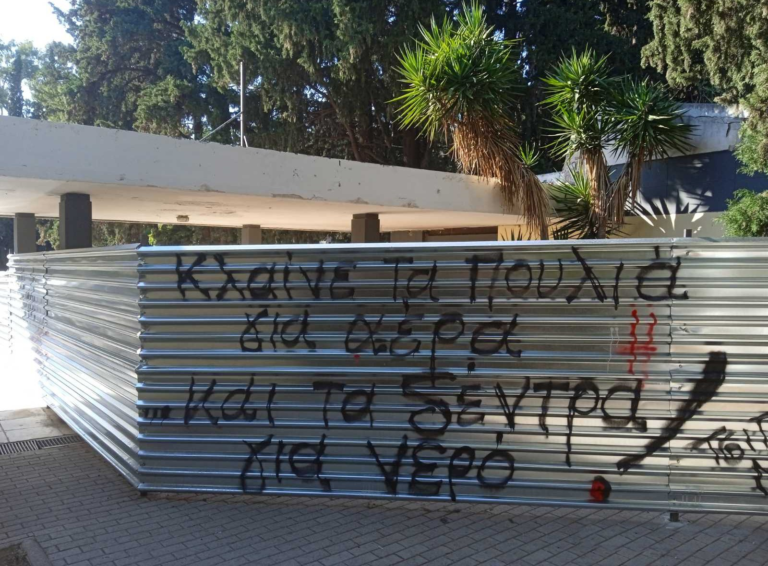 Κλαίνε Τα Πουλιά
για αέρα
...Και Τα δέντρα
για νερό!